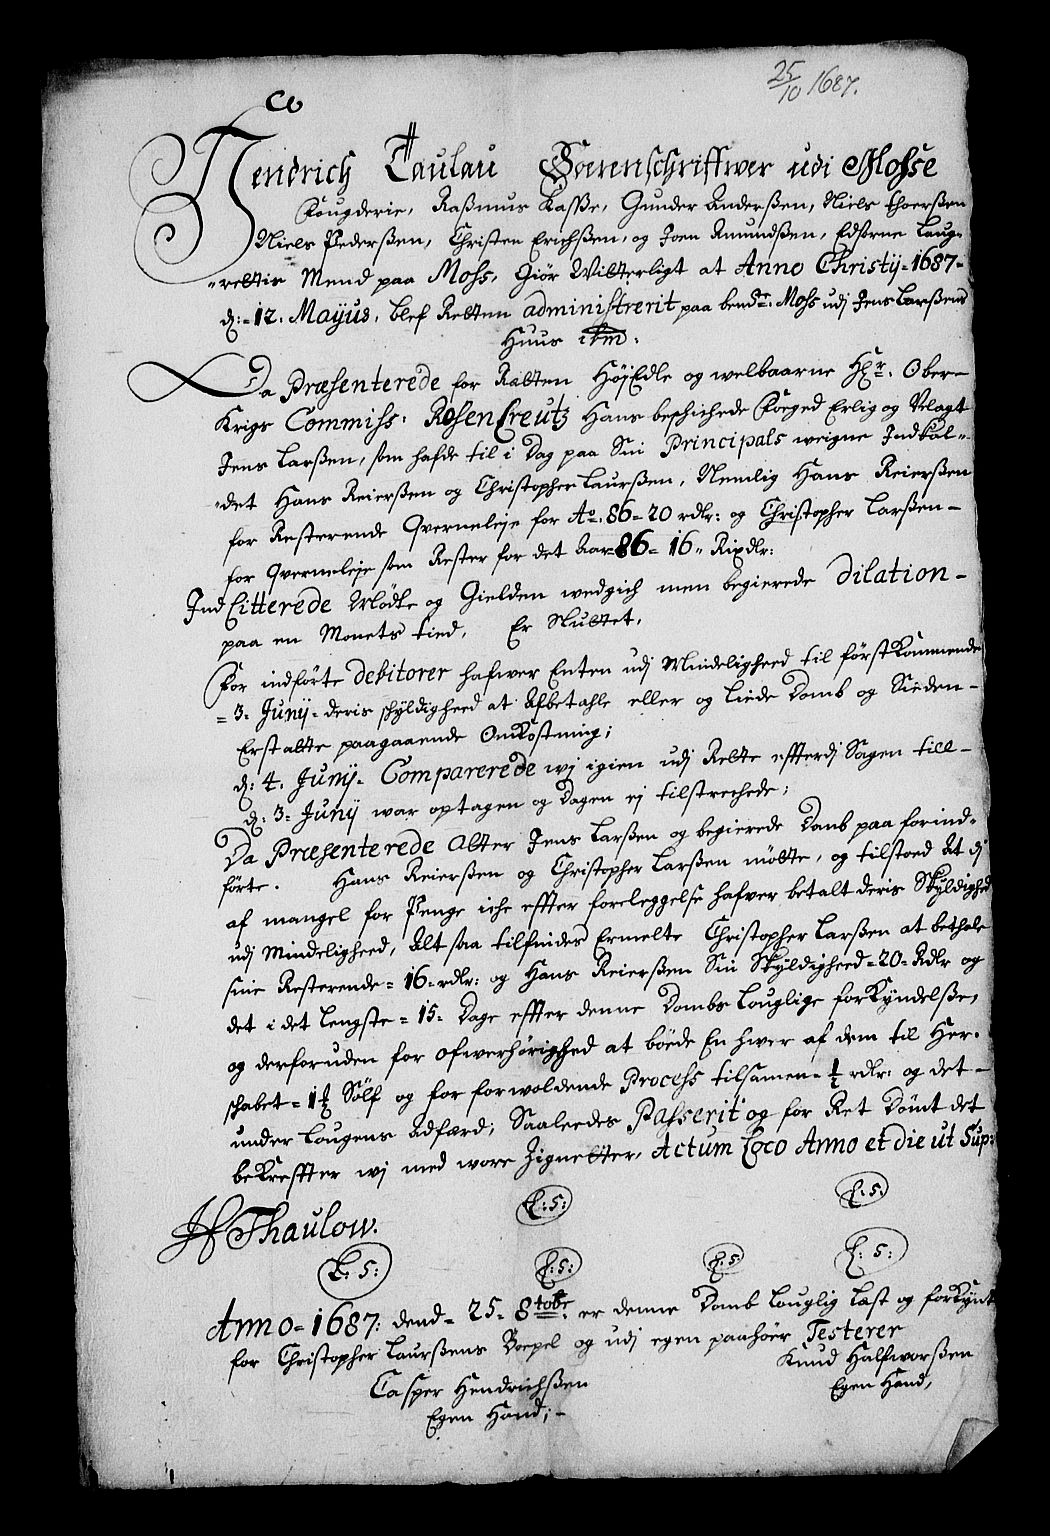 25/10 1687.
Co
Hendrich Taulau Sorenschriffwer udi Mosse
Fougderie, Rasmus Kasse, Gunder Anderßen, Niels Thoerßen
Niels Pederßen, Christen Erichßen, og Joen Amundßen, Edsorne Laug-
rettis Mend paa Moss, Giør Witterligt at Anno Christij = 1687 =
d: = 12. Mayus, blef Retten administrerit paa bendte: Moss udj Jens Larßens
Huus ibm:
Da Præsenterede for Retten HøjEdle og welbaarne Hr. Ober-
Krigs Commiss: RosenCreutz Hans beschichede Foeged Erlig og Velagt
Jens Larßen, som hafde til i Dag paa Sin Principals weigne Indkal-
det Hans Reierßen og Christopher Laurßen, Nemlig Hans Reierßen
for Resterende Qverneleje for Ao: 86 = 20 rdlr: og Christopher Larßen -
for Qverneleje som Rester for det Aar = 86 = 16 = Rixdlr:
Ind Citterede Mødte og Gielden wedgich men begierede dilation -
paa en Monets tied, Er Sluttet,
For indførte debitorer hafwer Enten udj Mindeligheed til førstkommende
= 3: Junij = deris schyldigheed at Afbetahle eller og liede Domb og Sieden -
Erstatte paagaaende Omkostning;
d: 4. Junij = Comparerede wj igien udj Rette effterdj Sagen till -
d: 3: Junij war optagen og Dagen ej tilstrechede;
Da Præsenterede Atter Jens Larßen og begierede Domb paa forind-
førte. Hans Reierßen og Christopher Larßen møtte, og tilstoed At dj
af mangel for Penge iche effter foreleggelse hafver betalt deris Skyldighed
udj Mindeligheed, Alt saa tilfindes Ermelte Christopher Larßen at bethale
sine Resterende = 16 = rdlr: og Hans Reierßen Sin Skyldigheed = 20 = Rdlr og
det i det lengste = 15 = Dage effter denne Dombs Louglige forkyndelße,
og derforuden for ofwerhørighed at bøede En hwer af dem til Her-
schabet = 1½ Sølf og for forwoldende Process tilsamen = ½ rdlr: og det -
under Lougens Adfærd; Saaleedes Passerit og for Ret Dømt det
bekreffter wj med wore Zignetter, Actum Loco Anno et die ut Sup:
L: S: L: S:
H Thaulow.
L: S: L: S: L: S: L: S:
Anno = 1687: dend = 25 = 8tobr: er denne Domb Louglig Læst og forkyndt
for Christopher Laurßens Boepel og udj egen paahøer Testerer
Casper Hendrichßen Knud Halfworßen
Egen Hand; - Egen Hand,